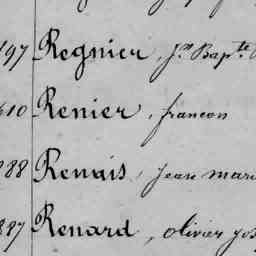 97 Regnier, Jn Bapte
610 Renier, francon
888 Renais, Jean mari
897 Renard, olivier jos